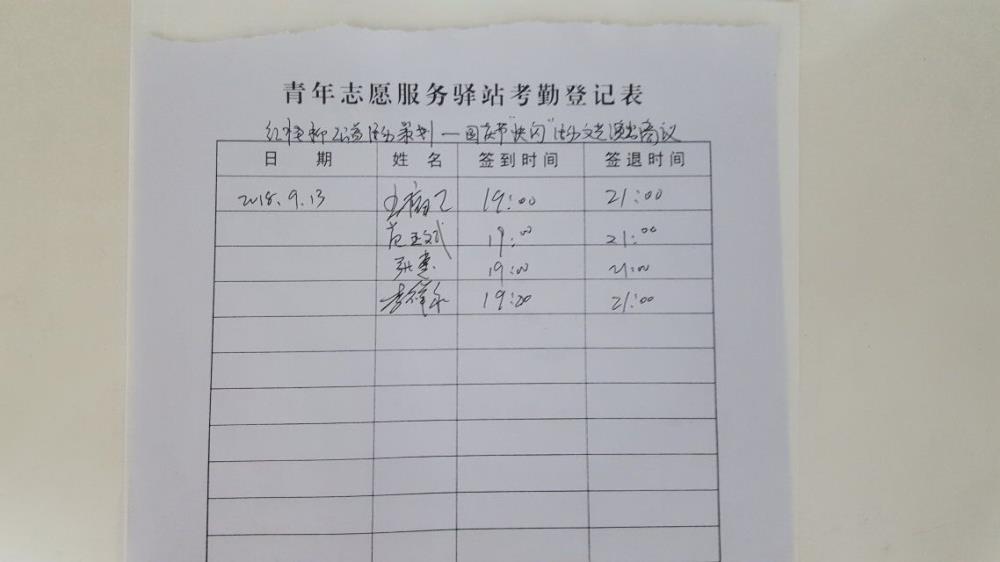 青年志愿服务驿站考勤登记表
红柽柳公益活动策划—国庆节"快闪"活动文艺演出商议
日 期 姓 名 签到时间 签退时间
2018.9.13 19:00 21:00
范玉斌 19:00 21:00
张惠 19:00 21:00
19:00 21:00